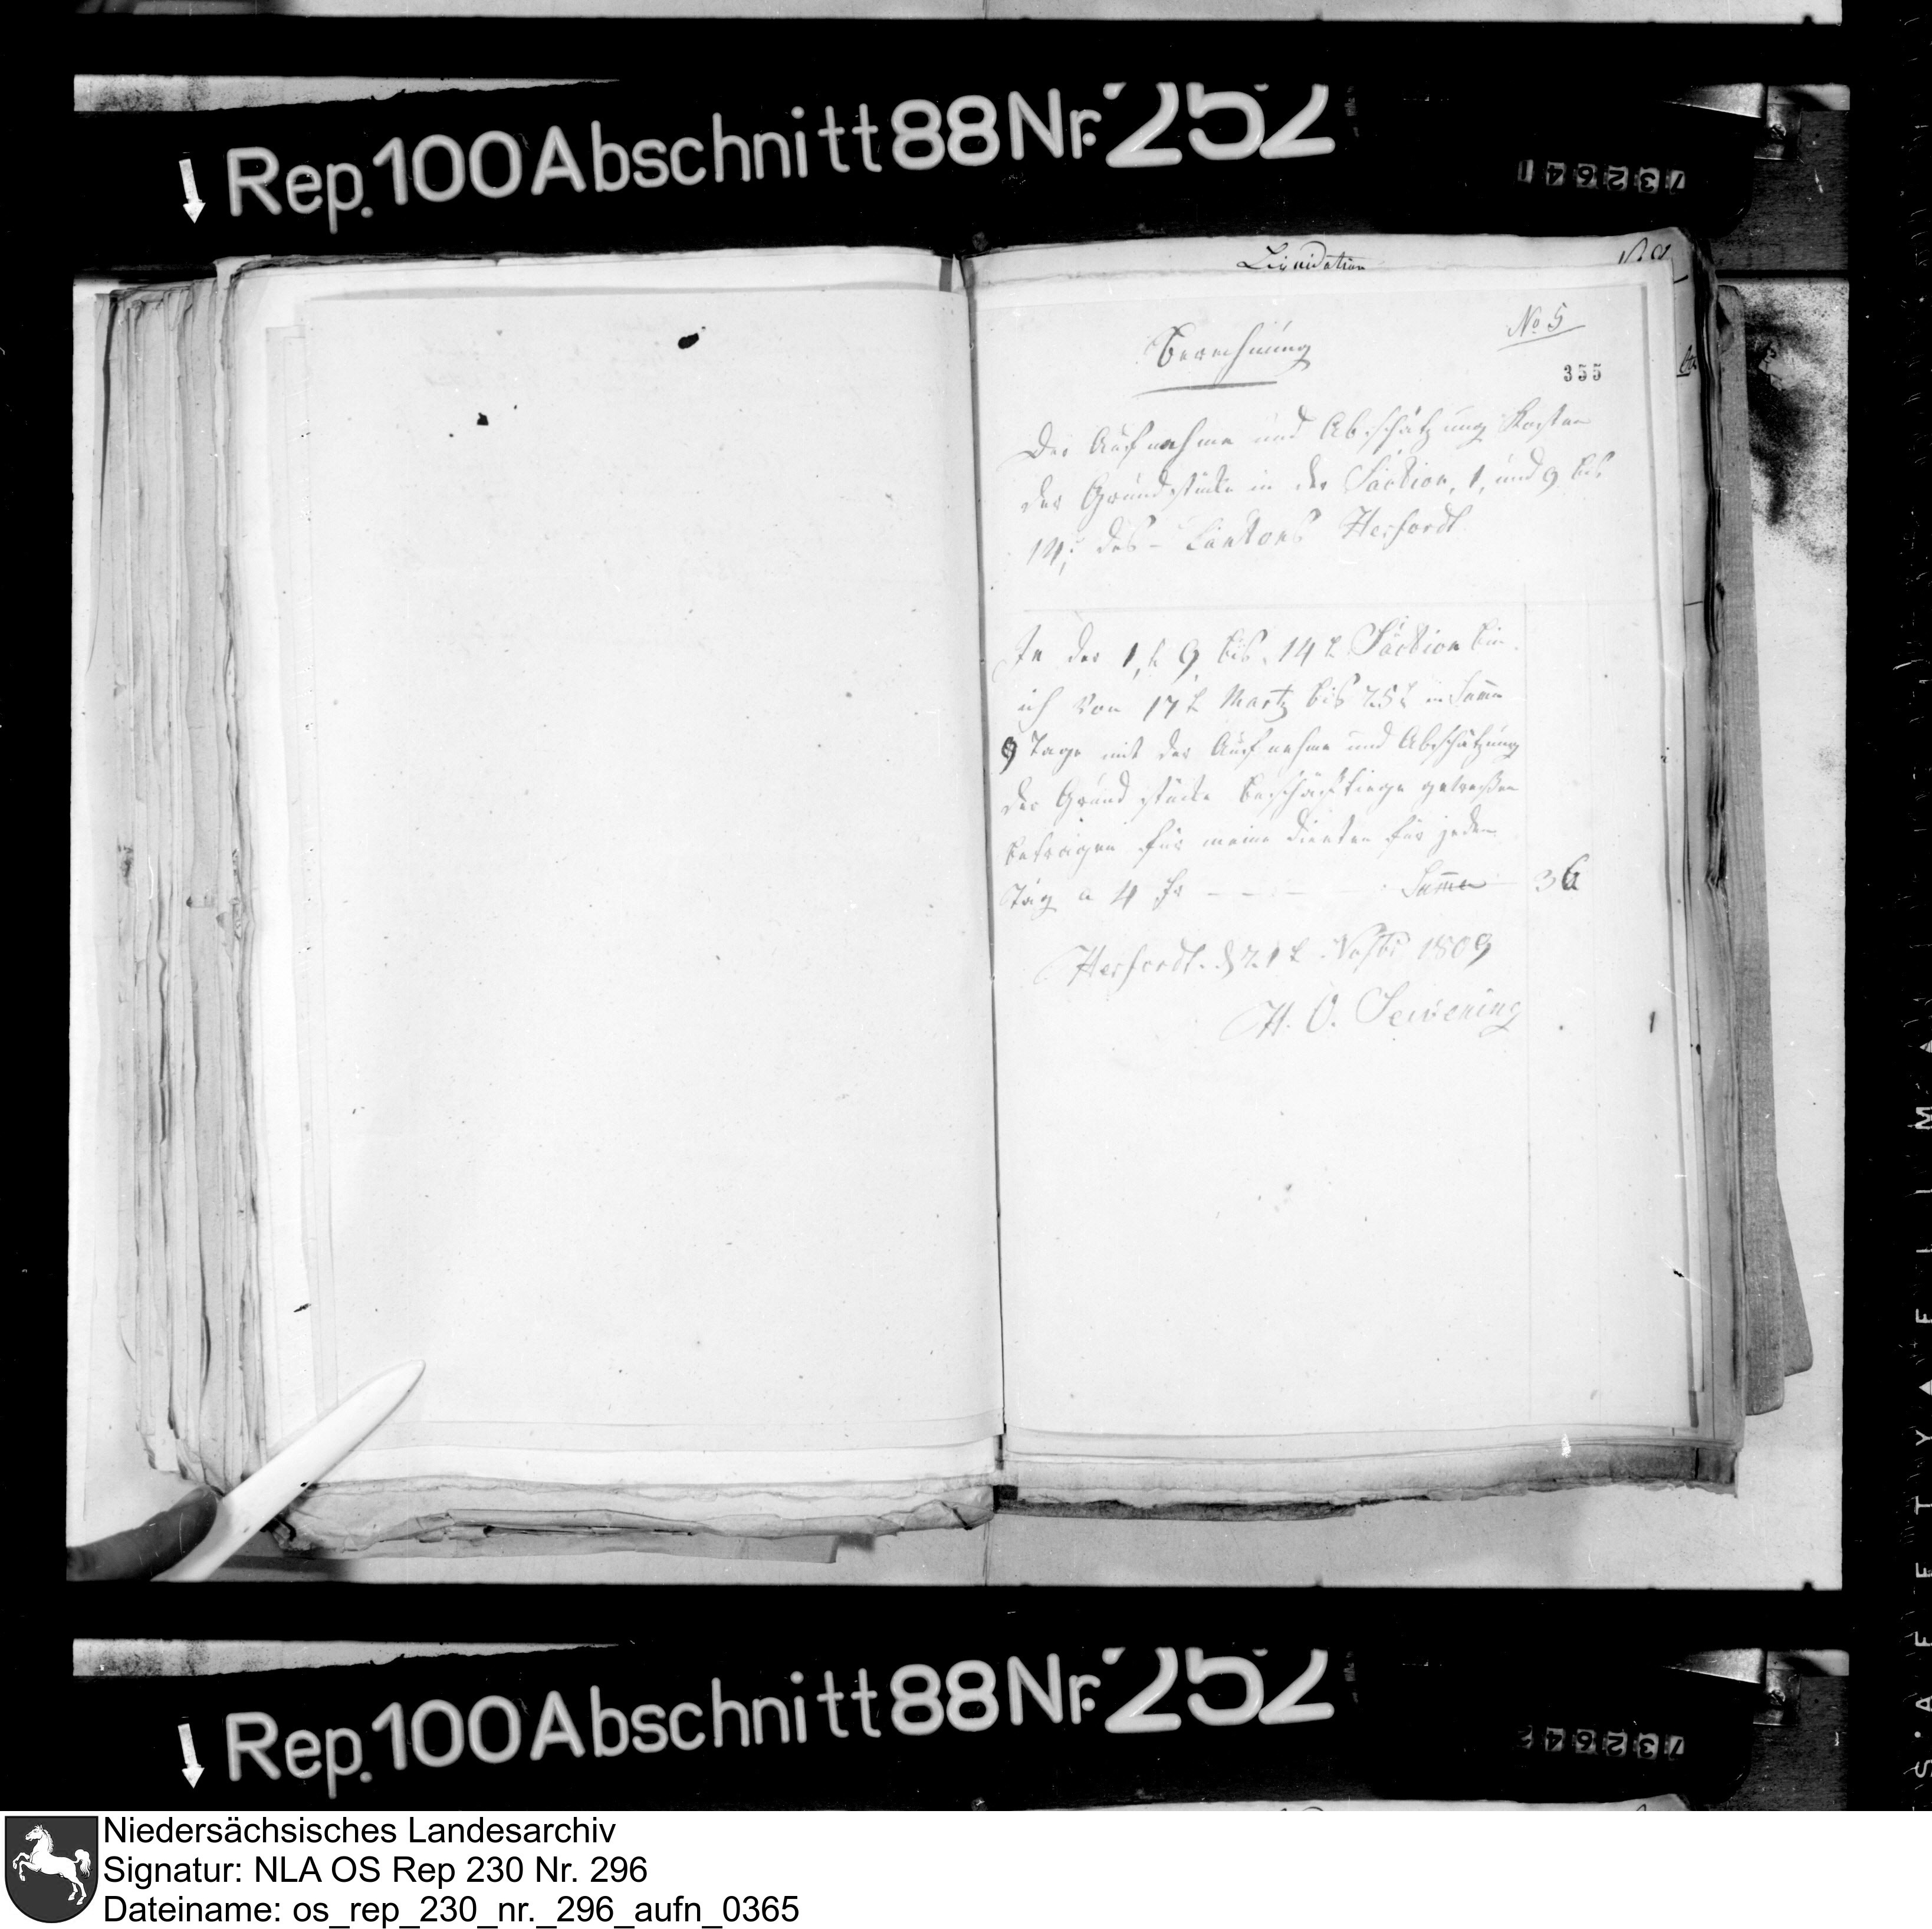 Rep. 100 Abschnitt 88 Nr. 252
732641
Liquidation
No 5
Berechnung
355
Der Aufnahme und Abschätzung Kosten
der Grundstücke in der Säction, 1, und 9 bis
14, des Cantons Herfordt
In der 1, t 9 bis 14 t Säction bin
ich von 17 t Martz bis 25 t in Suma
9 Tage mit der Aufnahme und Abschätzung
der Grundstücke beschäftiege
betragen für meine Dienten für jeden
Tag a 4 fr Summa 36
Herfordt. d 21 t 1809
H. O. Sewening
Rep. 100 Abschnitt 88 Nr. 252
732642
Niedersächsisches Landesarchiv
Signatur: NLA OS Rep 230 Nr. 296
Dateiname: os_rep_230_nr._296_aufn_0365